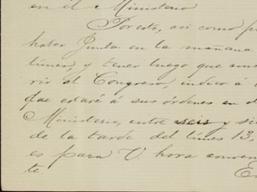 en el Ministerio
Por esto, así como p
haber Junta en la mañana
lunes, y tener luego que
rio al Congreso, indico á
que estaré á sus órdenes en
Ministerio, entre seis y si
de la tarde del lunes 13,
es para V hora conven
te.